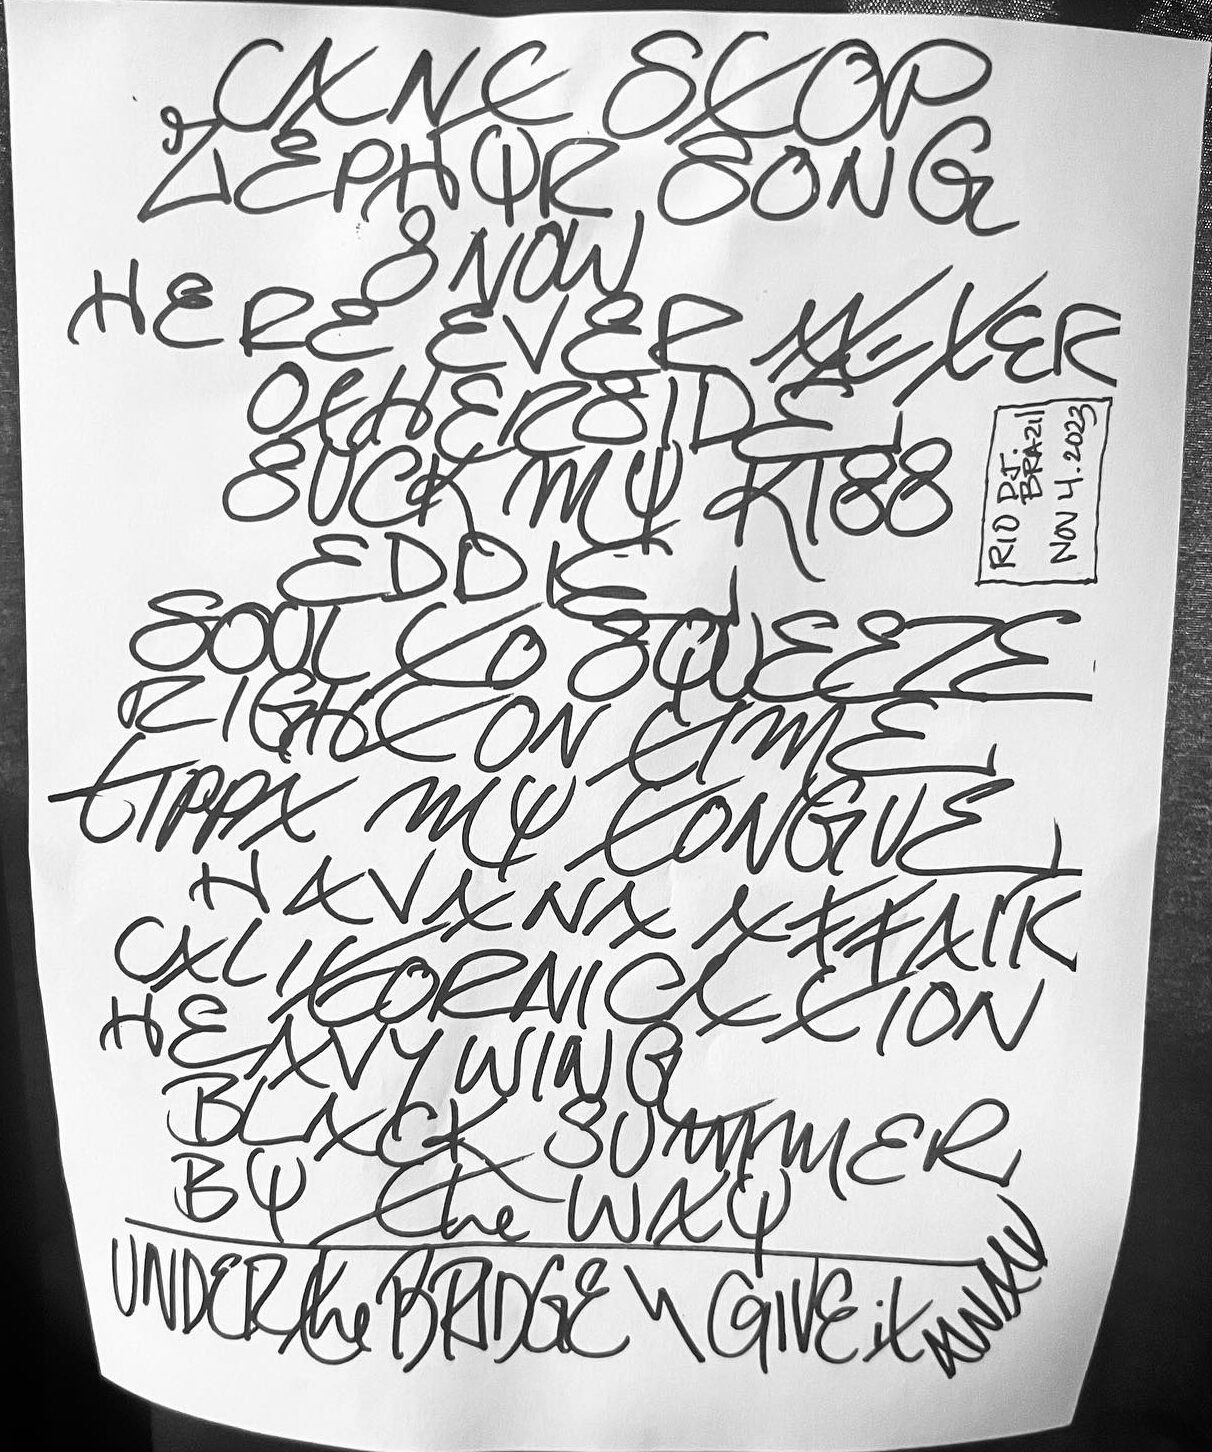 CANT STOP
ZEPHYR SONG
SNOW
HERE EVER AFTER
OTHERSIDE
SUCK MY KISS
EDDIE
SOUL TO SQUEEZE
RIGHT ON TIME
TIPPA MY TONGUE
HAVANA AFFAIR
CALIFORNICATION
HEAVY WING
BLACK SUMMER
BY the WAY
UNDER the BRIDGE \ GIVE it AWAY
RIO D.J.
BRAZIL
NOV 4. 2023